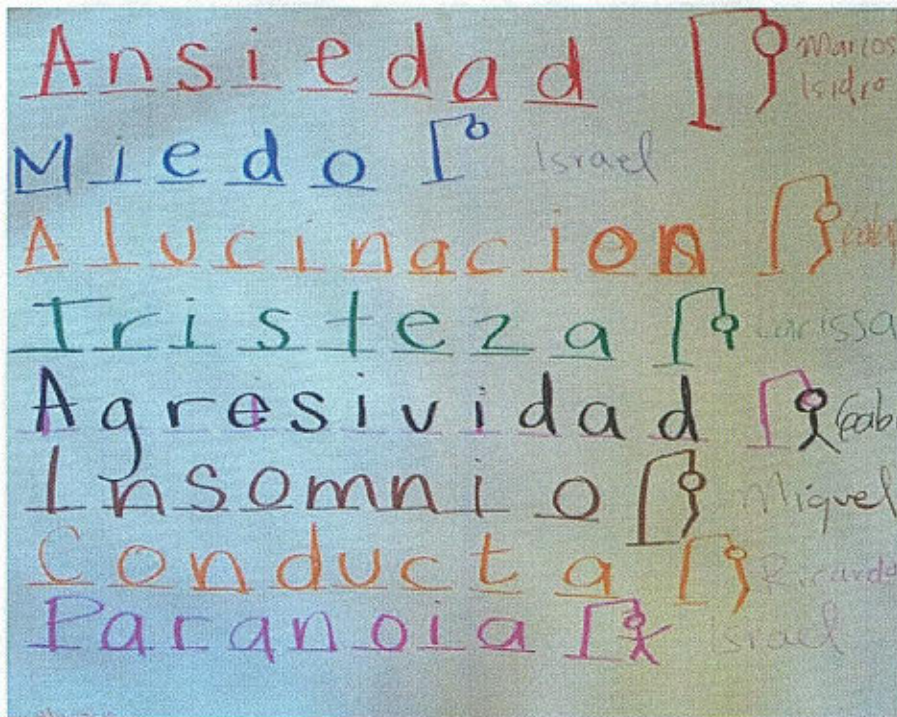 Ansiedad Marcos
Isidro
Miedo Israel
Alucinacion Gaby
Tristeza Larissa
Agresividad Gabi
Insomnio Miguel
Conducta Ricardo
Paranoia Israel